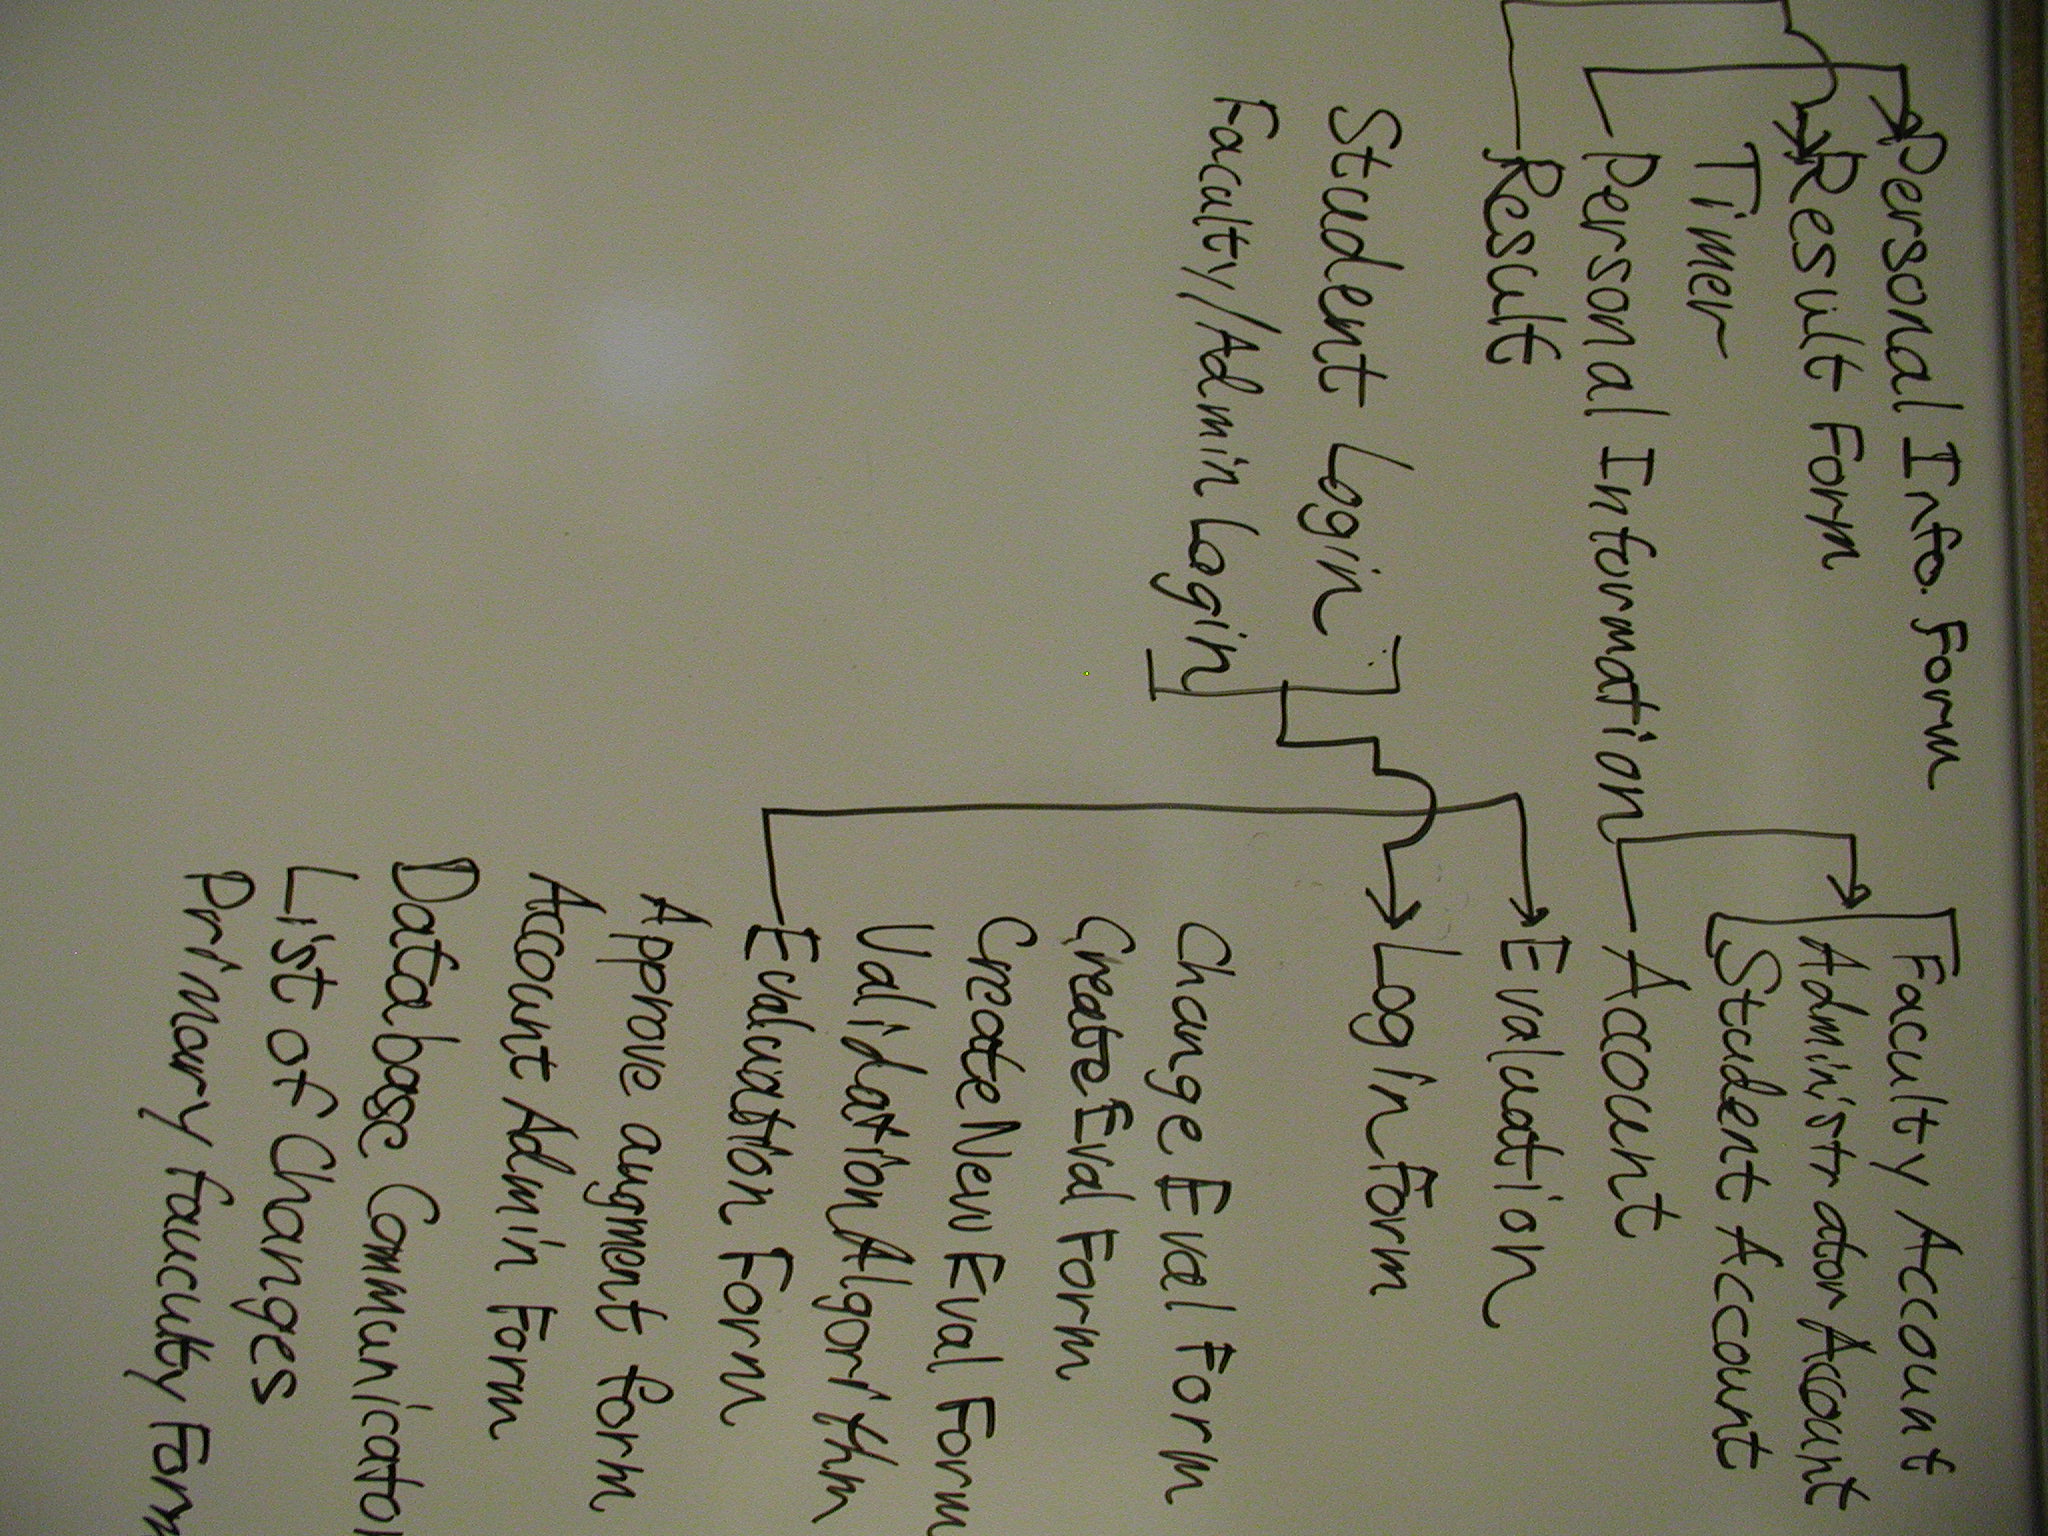 Personal Info. Form
Result Form
Timer
Personal Information
Result
Student Login
Faculty/Admin Login
Faculty Account
Administrator Account
Student Account
Account
Evaluation
Login Form
Change Eval Form
Create Eval Form
Create New Eval Form
Validation Algorithm
Evaluation Form
Approve augment form
Account Admin Form
Database Communicato
List of Changes
Primary faucuty Form